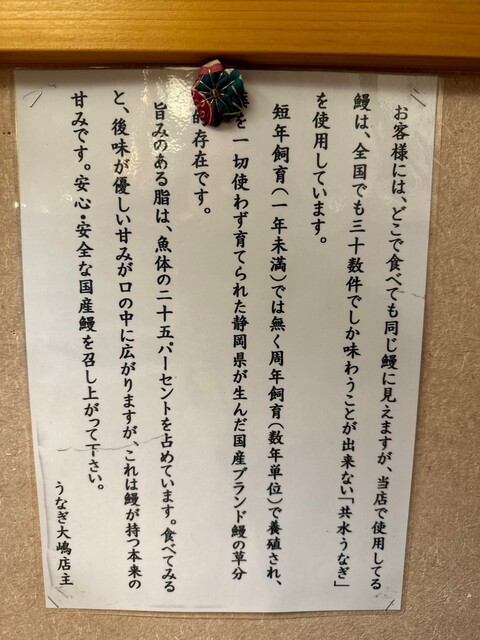 お客様には、どこで食べても同じ鰻に見えますが、当店で使用してる
鰻は、全国でも三十数件でしか味わうことが出来ない「共水うなぎ」
を使用しています。
短年飼育(一年未満)では無く周年飼育(数年単位)で養殖され、
を一切使わず育てられた静岡県が生んだ国産ブランド鰻の草分
的存在です。
旨みのある脂は、魚体の二十五パーセントを占めています。食べてみる
と、後味が優しい甘みが口の中に広がりますが、これは鰻が持つ本来の
甘みです。安心・安全な国産鰻を召し上がって下さい。
うなぎ大嶋店主